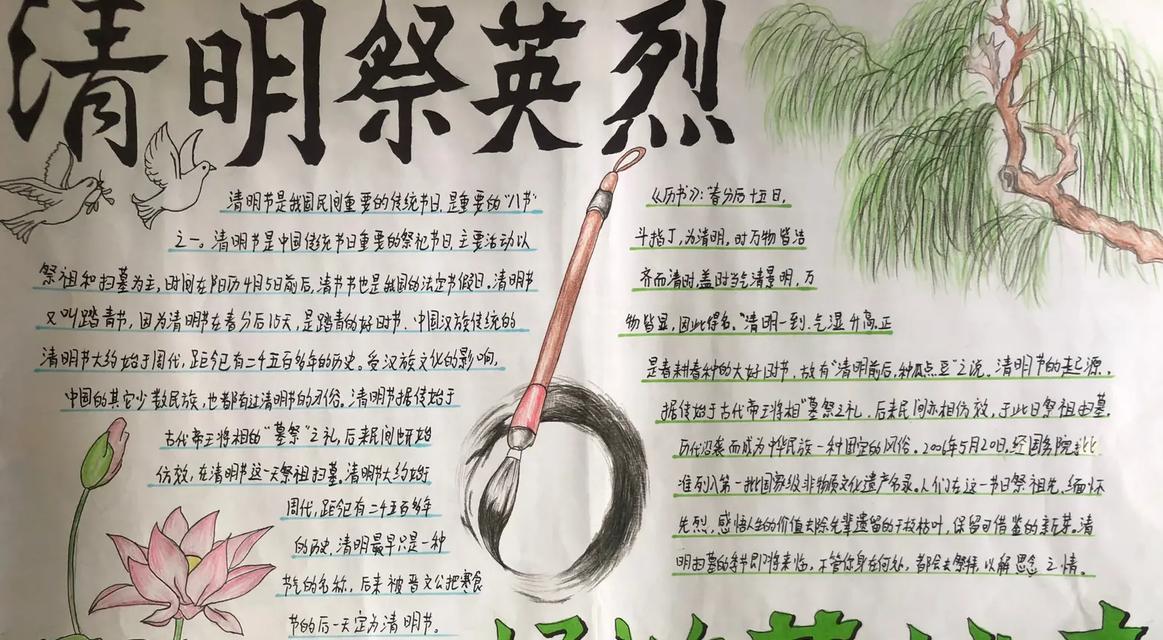 清明祭英烈
清明节是我国民间重要的传统节日,是重要的“八节”
之一。清明节是中国传统节日重要的祭祀节日,主要活动以
祭祖和扫墓为主,时间在阳历4月5日前后,清节节也是我国的法定节假日。清明节
又叫踏青节,因为清明节在春分后15天,是踏青的好时节。中国汉族传统的
清明节大约始于周代,距今已有二千五百多年的历史。受汉族文化的影响,
中国的其它少数民族,也都有过清明节的习俗。清明节据传始于
古代帝王将相的“墓祭”之礼,后来民间也开始
仿效,在清明节这一天祭祖扫墓。清明大约始于
周代,距今已有二千五百多年
的历史,清明最早只是一种
节气的名称,后来被晋文公把寒食
节的后一天定为清明节。
《历书》:春分后十五日,
斗指丁,为清明,时万物皆洁
齐而清明,盖时当气清景明,万
物皆显,因此得名。“清明一到,气温升高,正
是春耕春种的大好时节,故有“清明前后,种瓜点豆”之说。清明节的起源,
据传始于古代帝王将相“墓祭之礼,后来民间亦相仿效,于此日祭祖扫墓,
历代沿袭而成为中华民族一种固定的风俗。2006年5月20日,经国务院批
准列入第一批国家级非物质文化遗产名录。人们在这一节日祭祖先,缅怀
先烈,感悟人生的价值去除先辈遗留的干枝枯叶,保留可借鉴的新芽。清
明扫墓的季节即将来临,不管你身在何处,都会去祭拜,以解思念之情。